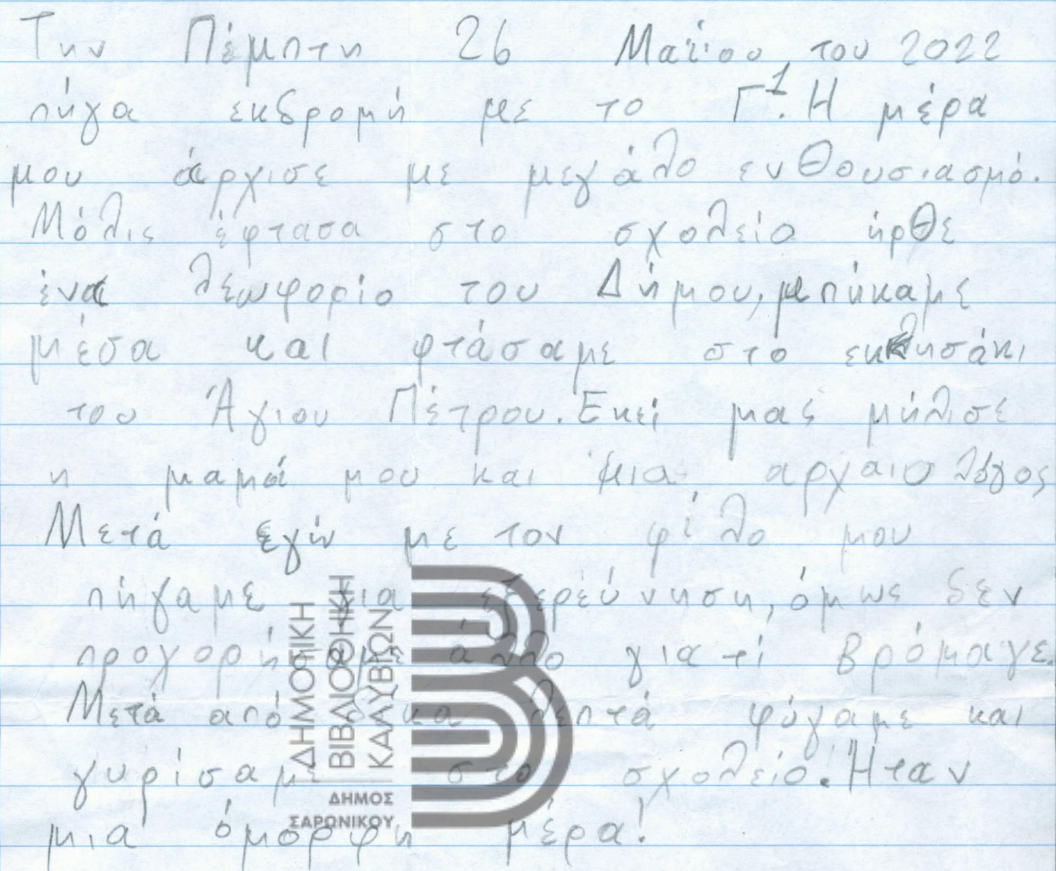 Την Πέμπτη 26 Μαΐου του 2022
πήγα εκδρομή με το Γ1. Η μέρα
μου άρχισε με μεγάλο ενθουσιασμό.
Μόλις έφτασα στο σχολείο ήρθε
ένα λεωφορίο του Δήμου, μπήκαμε
μέσα και φτάσαμε στο εκκλησάκι
του Άγιου Πέτρου. Εκεί μας μήλισε
η μαμά μου και μια αρχαιολόγος
Μετά εγώ με τον φίλο μου
πήγαμε για εξερεύνηση, όμως δεν
προχορήσαμε άλλο γιατί βρόμαγε.
Μετά από δέκα λεπτά φύγαμε και
γυρίσαμε στο σχολείο. Ήταν
μια όμορφη μέρα!
ΔΗΜΟΤΙΚΗ
ΒΙΒΛΙΟΘΗΚΗ
ΚΑΛΥΒΙΩΝ
ΔΗΜΟΣ
ΣΑΡΩΝΙΚΟΥ